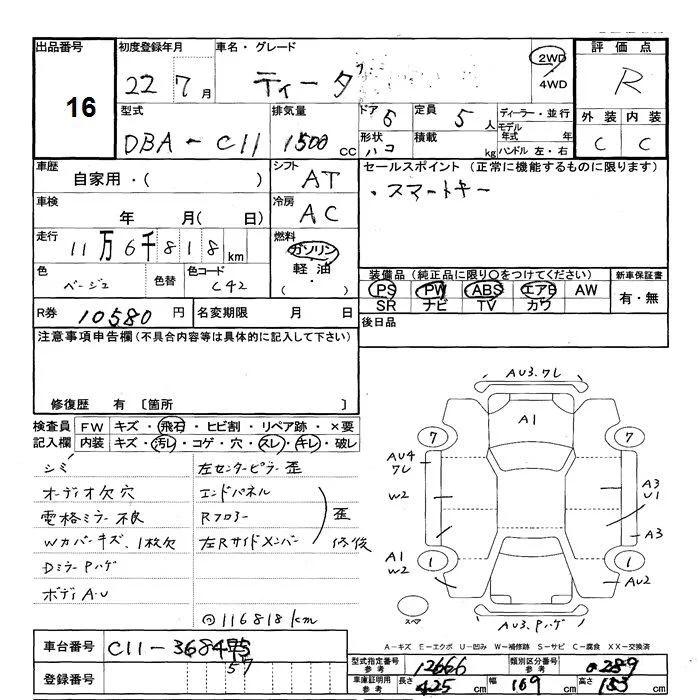 出品番号 初度登録年月 車名・グレード 評価点
16 22年 7月 ティーダ 2WD ・ 4WD R
型式 排気量 ドア 6 定員 5人 ディーラー・並行 外装 内装
DBA-C11 1500cc 形状 ハコ 積載 kg モデル年式 年 ハンドル 左・右 C C
車歴 シフト セールスポイント (正常に機能するものに限ります)
自家用・( ) AT ・スマートキー
車検 冷房
年 月( 日) AC
走行 燃料
11万6千818km ガソリン
色 色替 色コード 軽油 装備品 (純正品に限り○をつけてください) 新車保証書
ベージュ C42 ・( ) PS PW ABS エアB AW 有・無
SR ナビ TV カワ
R券 10580円 名変期限 月 日 後日品
注意事項申告欄(不具合内容等は具体的に記入して下さい)
修復歴 有 [箇所 ]
検査員 FW キズ・飛石・ヒビ割・リペア跡・×要
記入欄 内装 キズ・汚レ・コゲ・穴・スレ・キレ・破レ
シミ 左センターピラー歪
オーディオ欠穴 エンドパネル
電格ミラー不良 Rフロアー 歪
Wカバーキズ、1枚欠 左Rサイドメンバー 修復
DミラーPハゲ
ボディA・U
◎116818km
AU3.フレ
A1
7 7
AU4
フレ
W2
A3
U1
A3
A1
W2
1 1
AU2
スペア
AU3.Pハゲ
A-キズ E-エクボ U-凹み W-補修跡 S-サビ C-腐食 XX-交換済
車台番号 C11-368475
57
登録番号
型式指定番号 参考 12666 類別区分番号 参考 0289
車庫証明用 参考 長さ 425cm 幅 169cm 高さ 153cm